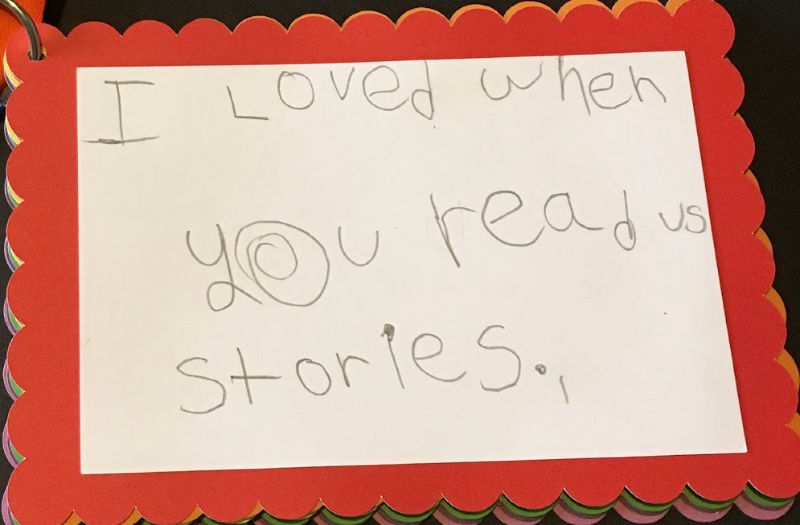 I Loved when
you read us
stories.,